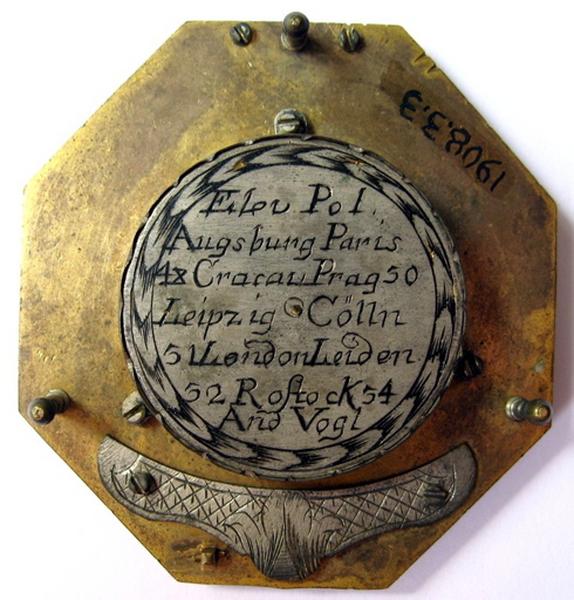 Elev Pol
Augsburg Paris
48 Cracau Prag 50
Leipzig Cölln
51 London Leiden
52 Rostock 54
And Vogl
1908.3.3